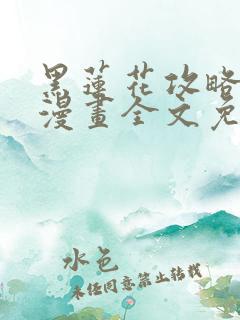 黑蓮花攻略
漫畫全文免
水色
未经同意禁止转载